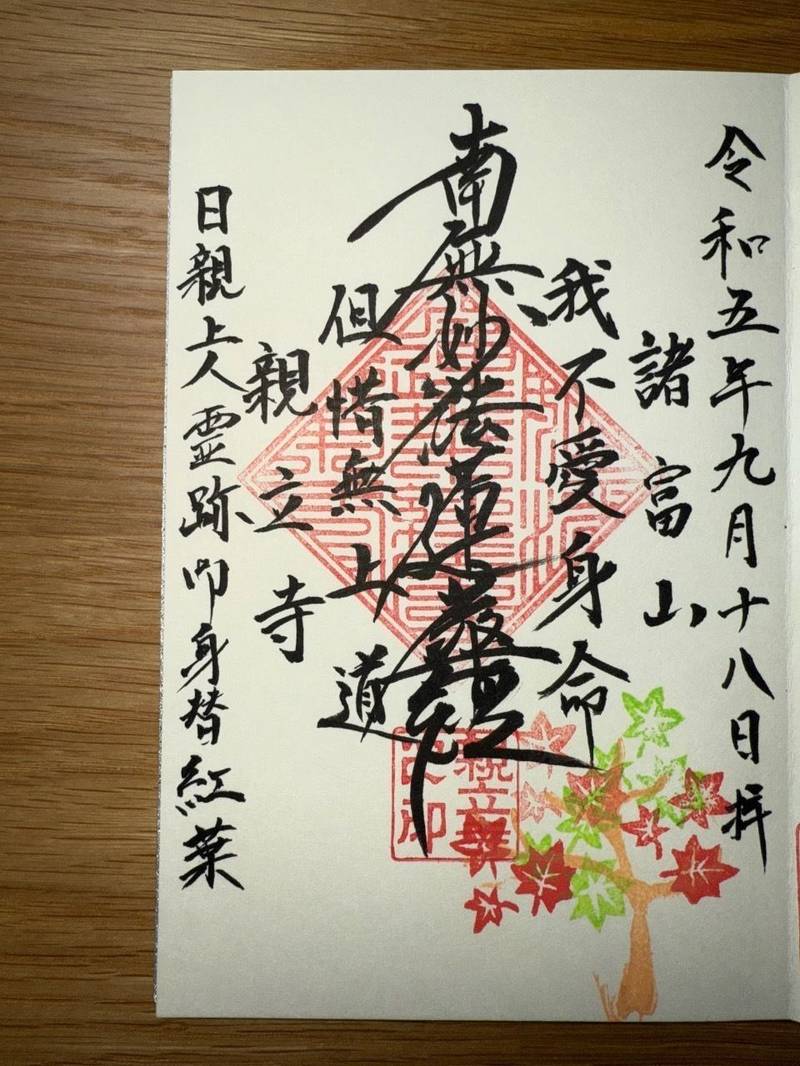 令和五年九月十八日拝
諸富山
我不愛身命
南無妙法蓮華経
但惜無上道
親立寺
日親上人霊跡御身替紅葉